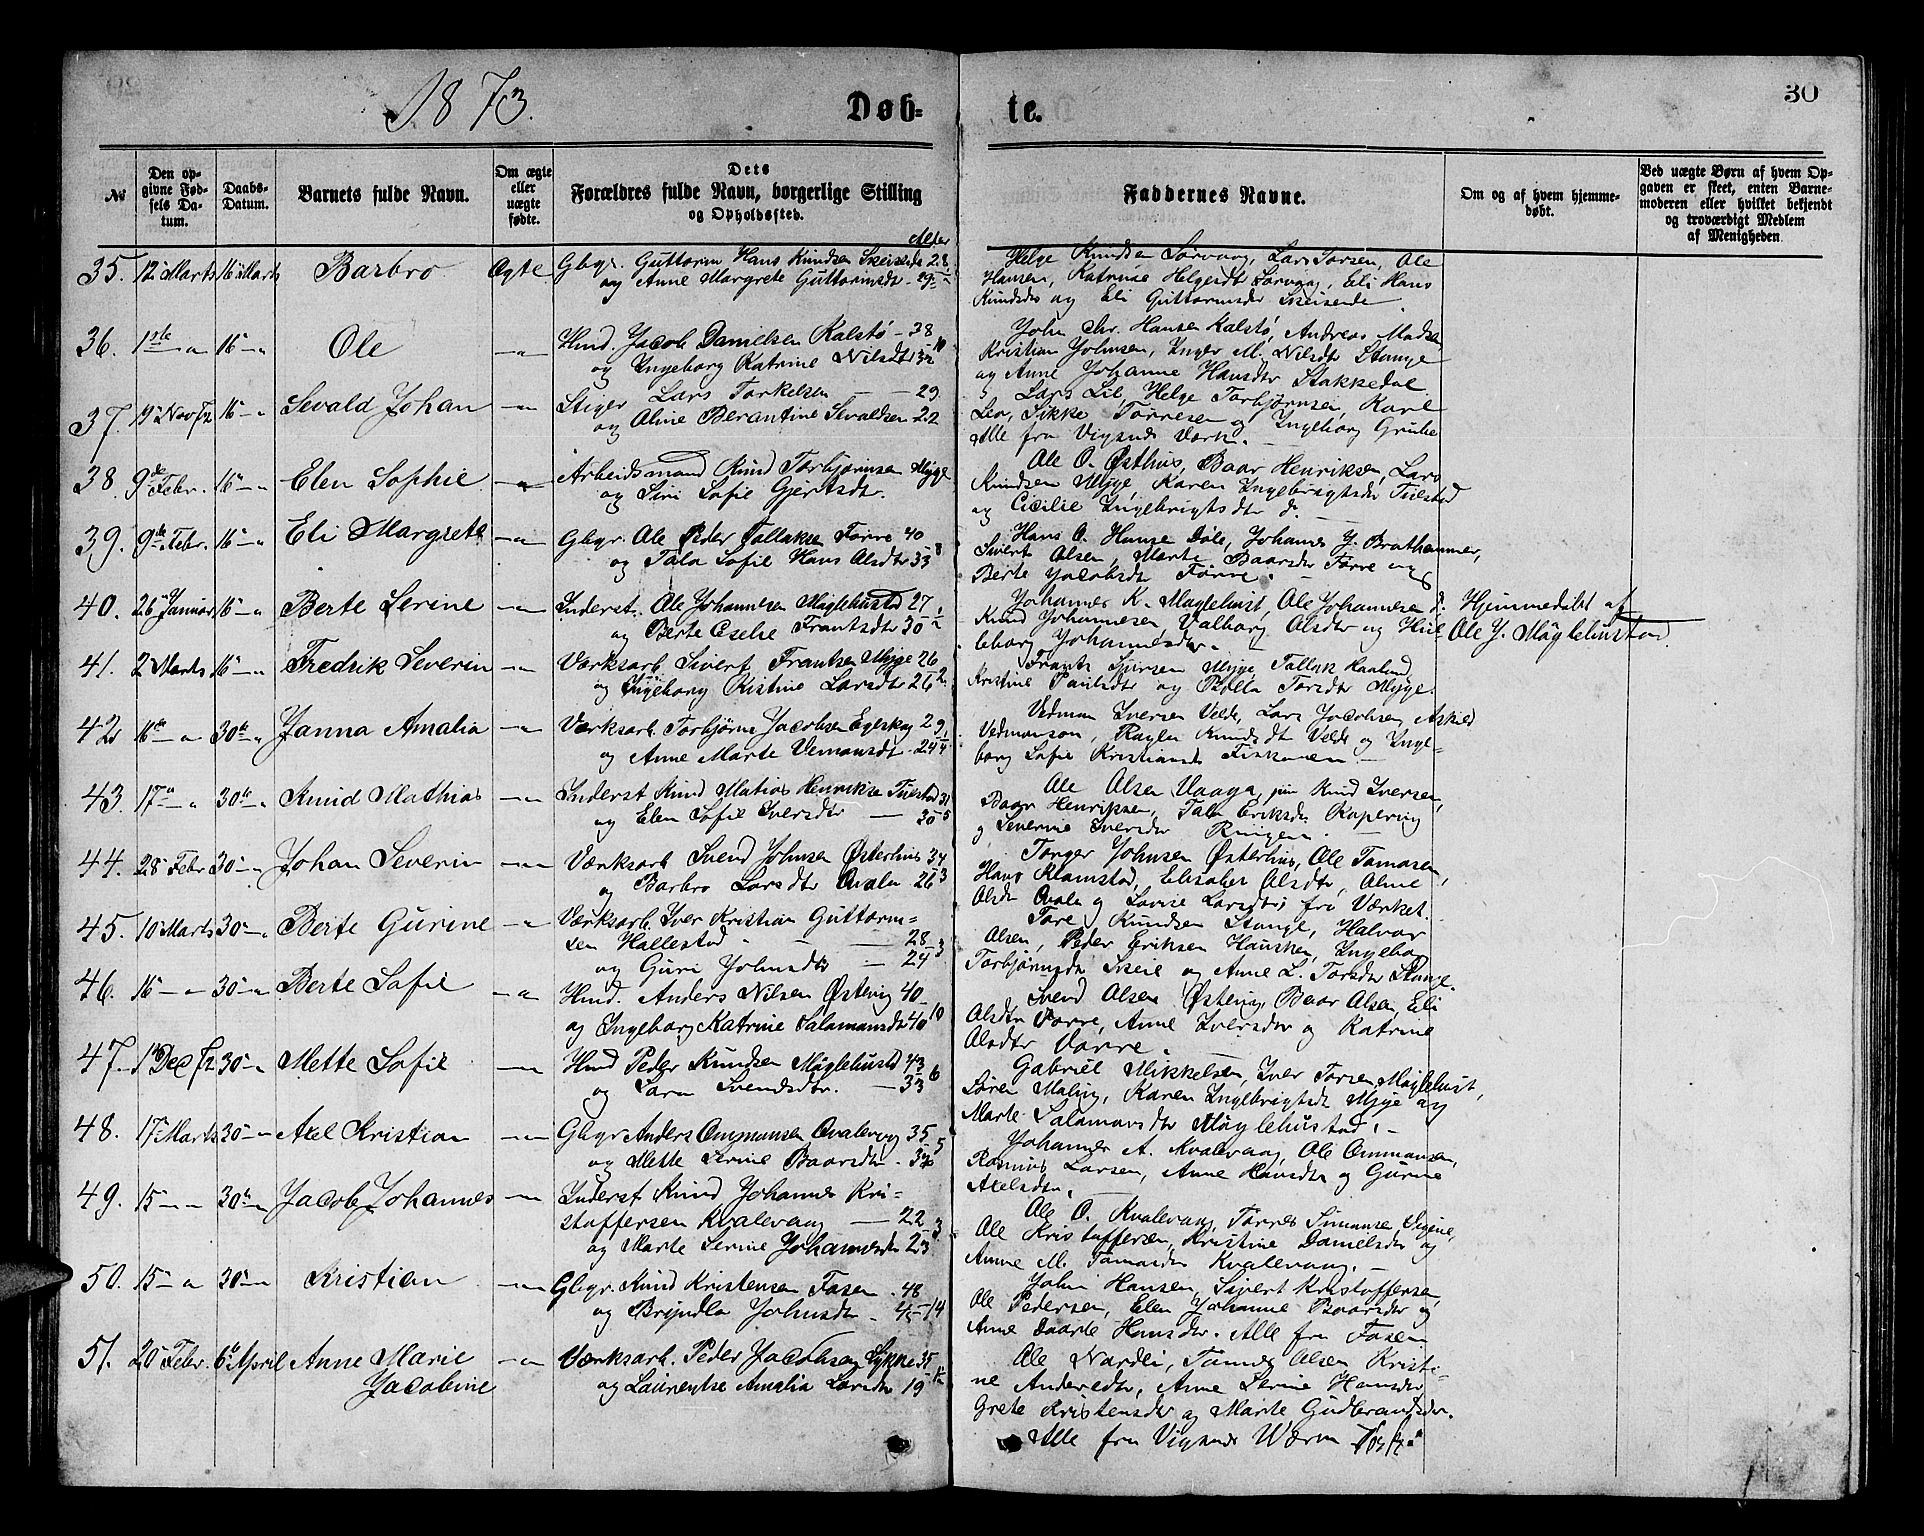 1873.
Døb-
te.
30
№
Den op-
givne Fød-
sels Da-
tum.
Daabs-
Datum.
Barnets fulde Navn.
Om ægte
eller
uægte
fødte.
Dets
Forældres fulde Navn, borgerlige Stilling
og Opholdssted.
Alder
Faddernes Navne.
Om og af hvem hjemme-
døbt.
Ved uægte Børn af hvem Op-
gaven er skeet, enten Barne-
moderen eller hvilket bekjendt
og troværdigt Medlem
af Menigheden.
35. 12 Marts 16 Marts Barbro Ægte Gbgr. Guttorm Hans Knudsen 28
og Anne Margrete Guttormsdt. 29
Helge Knudsen Sørvaag, Lars Torsen, Ole
Hansen, Katrine Helgesdt Sørvaag, Eli Hans
Knudsdt og Eli Guttormsdtr
36. 1ste — 16 — Ole — Hmd. Jacob Danielsen Kalstø — 38
og Ingeborg Katrine Nilsdt 10
John Chr. Hansen Kalstø, Andreas Madsen
Kristian Johnsen, Inger M. Nilsdtr Stange
og Anne Johanne Hansdtr Stakkedal
37. 19 Nov 72 16 — Sevald Johan — Stiger Lars Torkelsen — 29
og Aline Berantine Sivaldsen 22
Lars Lie, Helge Torbjørnsen, Karl
Torresen og Ingeborg Grube
Alle fra Vigsnæs Værk.
38. 9de Febr. 16 — Elen Sophie — Arbeidsmand Knud Torbjørnsen Myge
og Siri Sofie Gjertsdtr.
Ole O. Østhus, Baar Henriksen, Lars
Knudsen Myge, Karen Ingebrigtsdtr Tuestad
og Cicilie Ingebrigtsdtr do.
39. 9de Febr. 16 — Eli Margrete — Gbgr. Ole Peder Tollaksen Førre 40
og Tala Sofie Hans Olsdtr 33 8
Hans O. Hanse Døle, Johannes J. Brathammer,
Sivert Olsen, Marte Baarsdtr Førre og
Berte Jacobsdtr Førre.
40. 26 Januar 16 — Berte Serine — Inderst. Ole Johannesen Møglehustad 27
og Berte Frantsdtr 30
Johannes K. Møglehust, Ole Johannesen do.
Knud Johannesen, Valborg Olsdtr og
Johannesdtr.
Hjemmedøbt af
Ole J. Møglehustad.
41. 2 Marts 16 — Fredrik Severin — Værksarb. Sivert Frantsen Myge 26
og Ingeborg Kistine Larsdtr 26 2.
Frants Myge, Tollak Haaland
Kristine Paulsdtr og Torsdtr Myge.
42. 16de — 30te — Janna Amalia — Værksarb. Torbjørn Jacobsen Egeskog 29
og Anne Marte Vemansdt. 24
Vedman Iversen Velde, Lars Jacobsen, Askild
Vedmanson, Knudsdt Velde og Inge-
borg Sofie Kristiansdt
43. 17 — 30te — Knud Mathias — Inderst Knud Matias Henrikse Tuestad 31
og Elen Sofie Iversdtr — 30 5
Ole Olsen Vaaga, Knud Iversen,
Baar Henriksen, Tala Eriksdtr
og Severine Iversdtr Ringen.
44. 28 Febr 30 — Johan Severin — Værksarb Svend Johnsen Østerhus 34
og Barbro Larsdtr Qvala 26 3
Torger Johnsen Østerhus, Ole Tomasen,
Hans Klamstad, Elisabet Olsdtr, Aline
Olsdtr Qvala og Lovise Larsdtr fra Værket.
45. 10 Marts 30 — Berte Gurine — Værksarb. Iver Kristian Guttorm-
sen Hallestad — 28
og Guri Johnsdtr — 24 3
Tore Knudsen Stange, Halvor
Olsen, Peder Eriksen Hausken, Ingebor
Torbjørnsdtr Skeie og Anne L. Torsdtr Stange.
46. 16 — 30 — Berte Sofie — Hmd. Anders Nilsen Østevig 40
og Ingeborg Katrine Salamonsdtr 40 10
Svend Olsen Østevig, Baar Olsen, Eli
Olsdtr Vorre, Anne Iversdtr og Katrine
Olsdtr Vorre.
47. 1 Dec 72 30 — Mette Sofie — Hmd Peder Knudsen Møglehustad 43
og Lara Svendsdtr. — 33 6
Gabriel Mikkelsen, Iver Torsen Møglehust,
Søren Maling, Karen Ingebrigtsdt Myge og
Marte Salamonsdtr Møglehustad.
48. 17 Marts 30 — Axel Kristian — Gbgr Anders Ommunsen Qvalevog 35
og Mette Serine Baarsdtr 5
Johannes A. Kvalevaag, Ole Ommunsen,
Rasmus Larsen, Anne Hansdtr og Gurine
Axelsdtr.
49. 15 — 30te — Jacob Johannes — Inderst Knud Johannes Kri-
stoffersen Kvalevaag — 22
og Marte Serine Johannesdtr 23 3
Ole O. Kvalevaag, Torres Simonse Vigene,
Ole Kristoffersen, Kristine Danielsdtr og
Anne M. Tomasdtr Kvalevaag.
50. 15 — 30 — Kristian — Gbgr. Knud Kristensen Fosen 48
og Brynhla Johnsdtr 45 14
John Hansen, Sivert Kristoffersen,
Ole Pedersen, Elen Johanne Baarsdtr og
Anne Daarte Hansdtr. Alle fra Fosen
51. 20 Febr. 6 April Anne Marie
Jacobine — Værksarb. Peder Jacobsen Lykke 35
og Laurentse Amalia Larsdtr 19
Ole Nordli, Tomas Olsen, Kristi-
ne Andersdtr, Anne Serine Hansdtr,
Grete Kristensdtr og Marte Gudbrandsdtr.
Alle fra Vigsnæs